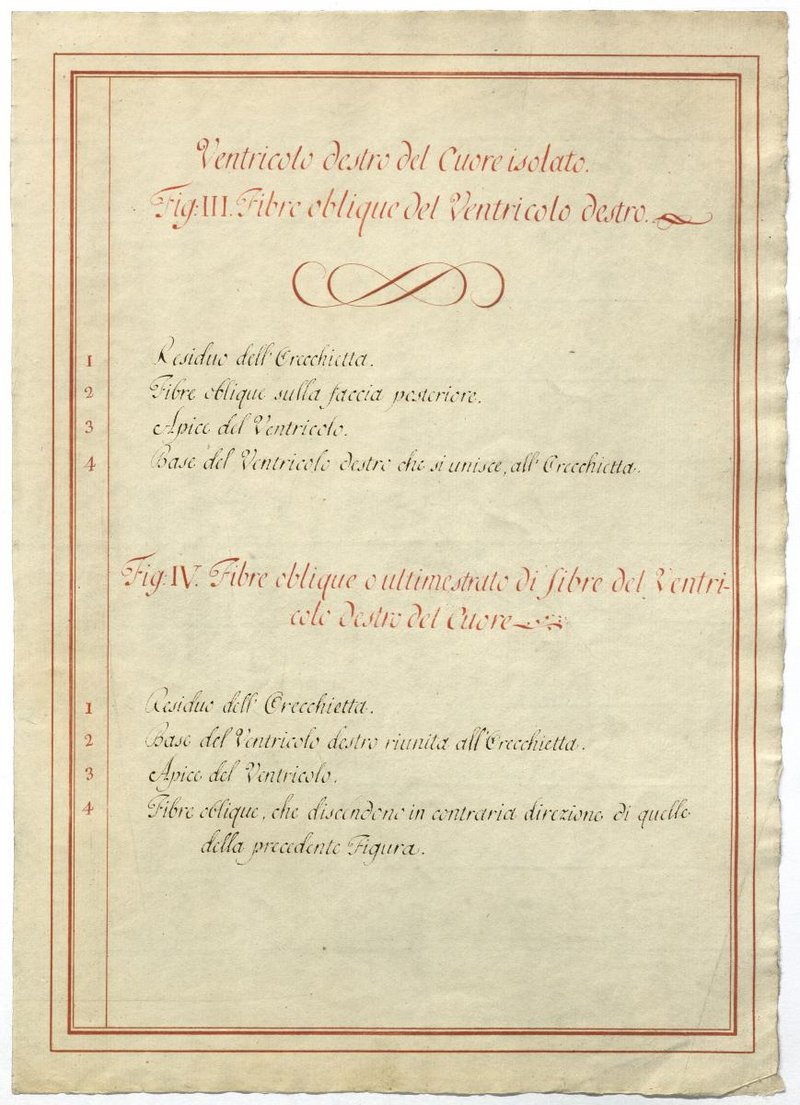 Ventricolo destro del Cuore isolato.
Fig: III. Fibre oblique del Ventricolo destro.
1 Residuo dell' Orecchietta.
2 Fibre oblique sulla faccia posteriore.
3 Apice del Ventricolo.
4 Base del Ventricolo destro che si unisce, all' Orecchietta.
Fig: IV. Fibre oblique o ultimestrato di fibre del Ventri-
colo destro del Cuore
1 Residuo dell' Orecchietta.
2 Base del Ventricolo destro riunita all' Orecchietta.
3 Apice del Ventricolo.
4 Fibre oblique, che discendono in contraria direzione di quelle
della precedente Figura.